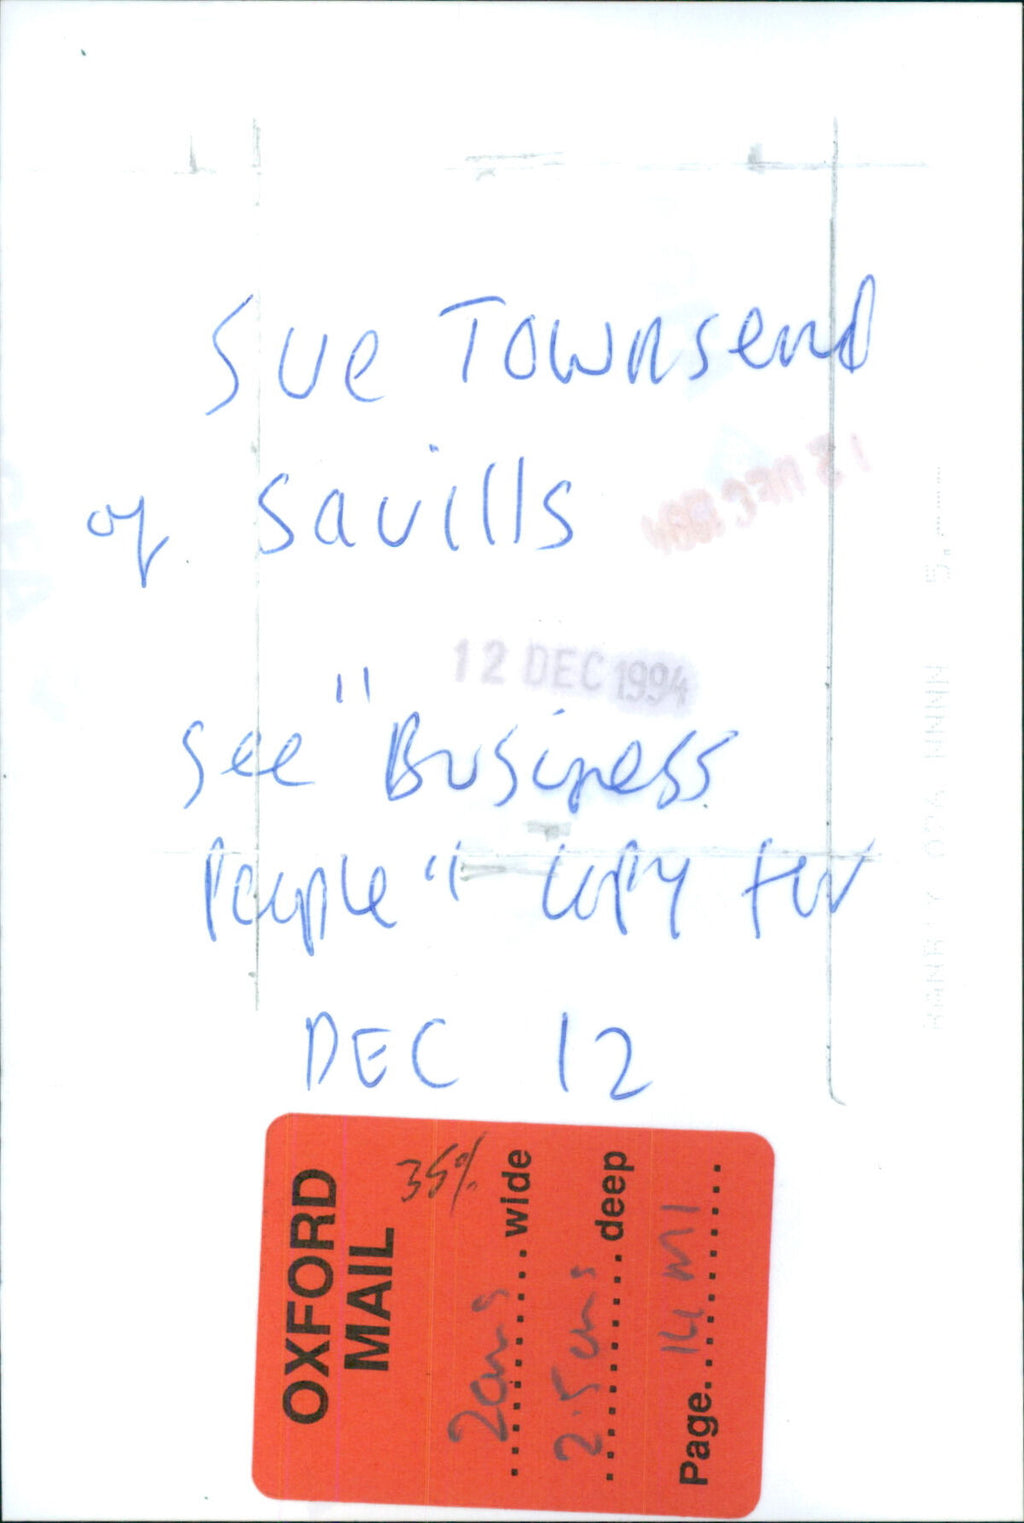 Sue Townsend
of Savills
13 DEC 1994
12 DEC 1994
see "Business
People" copy for
DEC 12
OXFORD
MAIL
35%
2cms wide
2.5cms deep
Page 14 M1